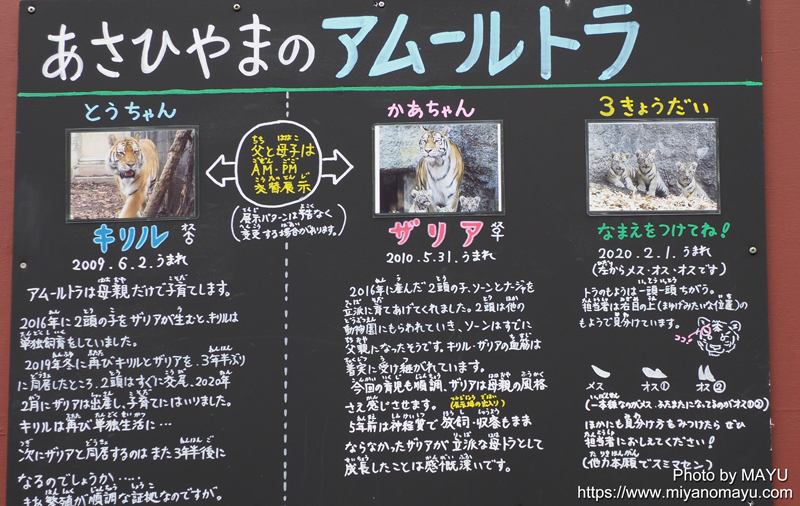 あさひやまのアムールトラ
とうちゃん
父と母子は
AM・PM
交替展示
(展示パターンは予告なく
変更する場合があります。)
キリル ♂
2009.6.2.うまれ
アムールトラは母親だけで子育てします。
2016年に2頭の子をザリアが生むと、キリルは
単独飼育をしていました。
2019年冬に再びキリルとザリアを、3年半ぶり
に同居したところ、2頭はすぐに交尾。2020年
2月にザリアは出産し、子育てにはいりました。
キリルは再び単独生活に…
次にザリアと同居するのはまた3年半後に
なるのでしょうか.....
まぁ繁殖が順調な証拠なのですが。
かあちゃん
ザリア ♀
2010.5.31.うまれ
2016年に産んだ2頭の子、ソーンとナージャを
立派に育てあげてくれました。2頭は他の
動物園にもらわれていき、ソーンはすでに
父親になったそうです。キリル・ザリアの血筋は
着実に受け継がれています。
今回の育児も順調、ザリアは母親の風格
さえ感じさせます。
5年前は神経質で放飼・収容もまま
ならなかったザリアが立派な母トラとして
成長したことは感慨深いです。
3きょうだい
なまえをつけてね!
2020.2.1.うまれ
(左からメス・オス・オスです)
トラのもようは一頭一頭ちがう。
担当者は右目の上(まゆげみたいな位置)の
もようで見分けています。
ココ
メス オス① オス②
(一本線なのがメス、ふたまたになってるのがオス①②)
ほかにも見分け方をみつけたら ぜひ
担当者におしえてください!
(他力本願でスミマセン)
Photo by MAYU
https://www.miyanomayu.com/